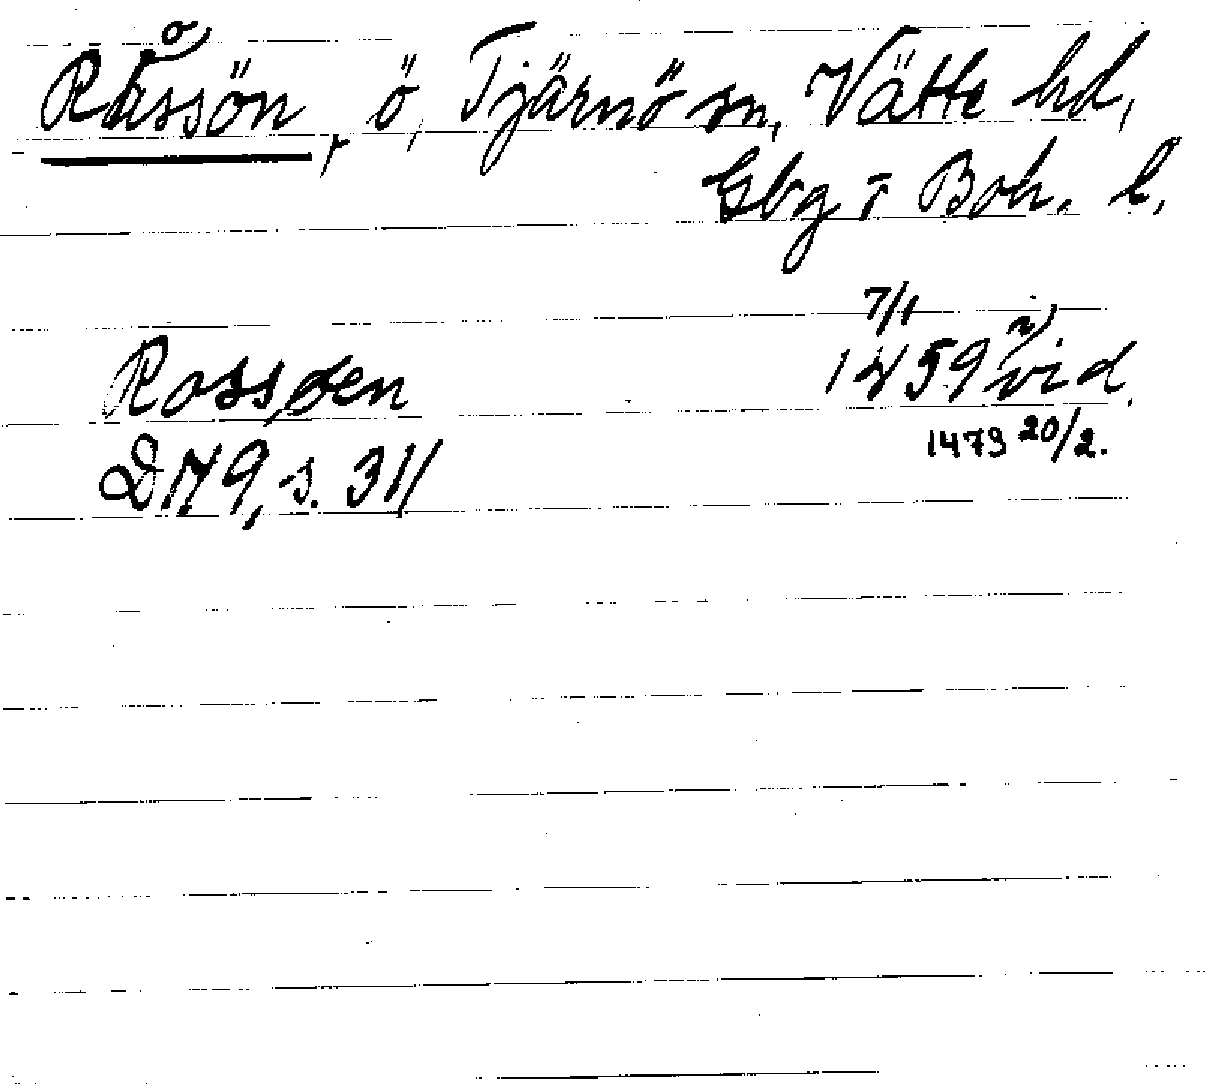 Råssön, ö, Tjärnö sn, Vätte hd,
Gbg o Boh. l.
7/1
Rossøen 1459 vid.
1473 20/2.
DN 9, s. 311